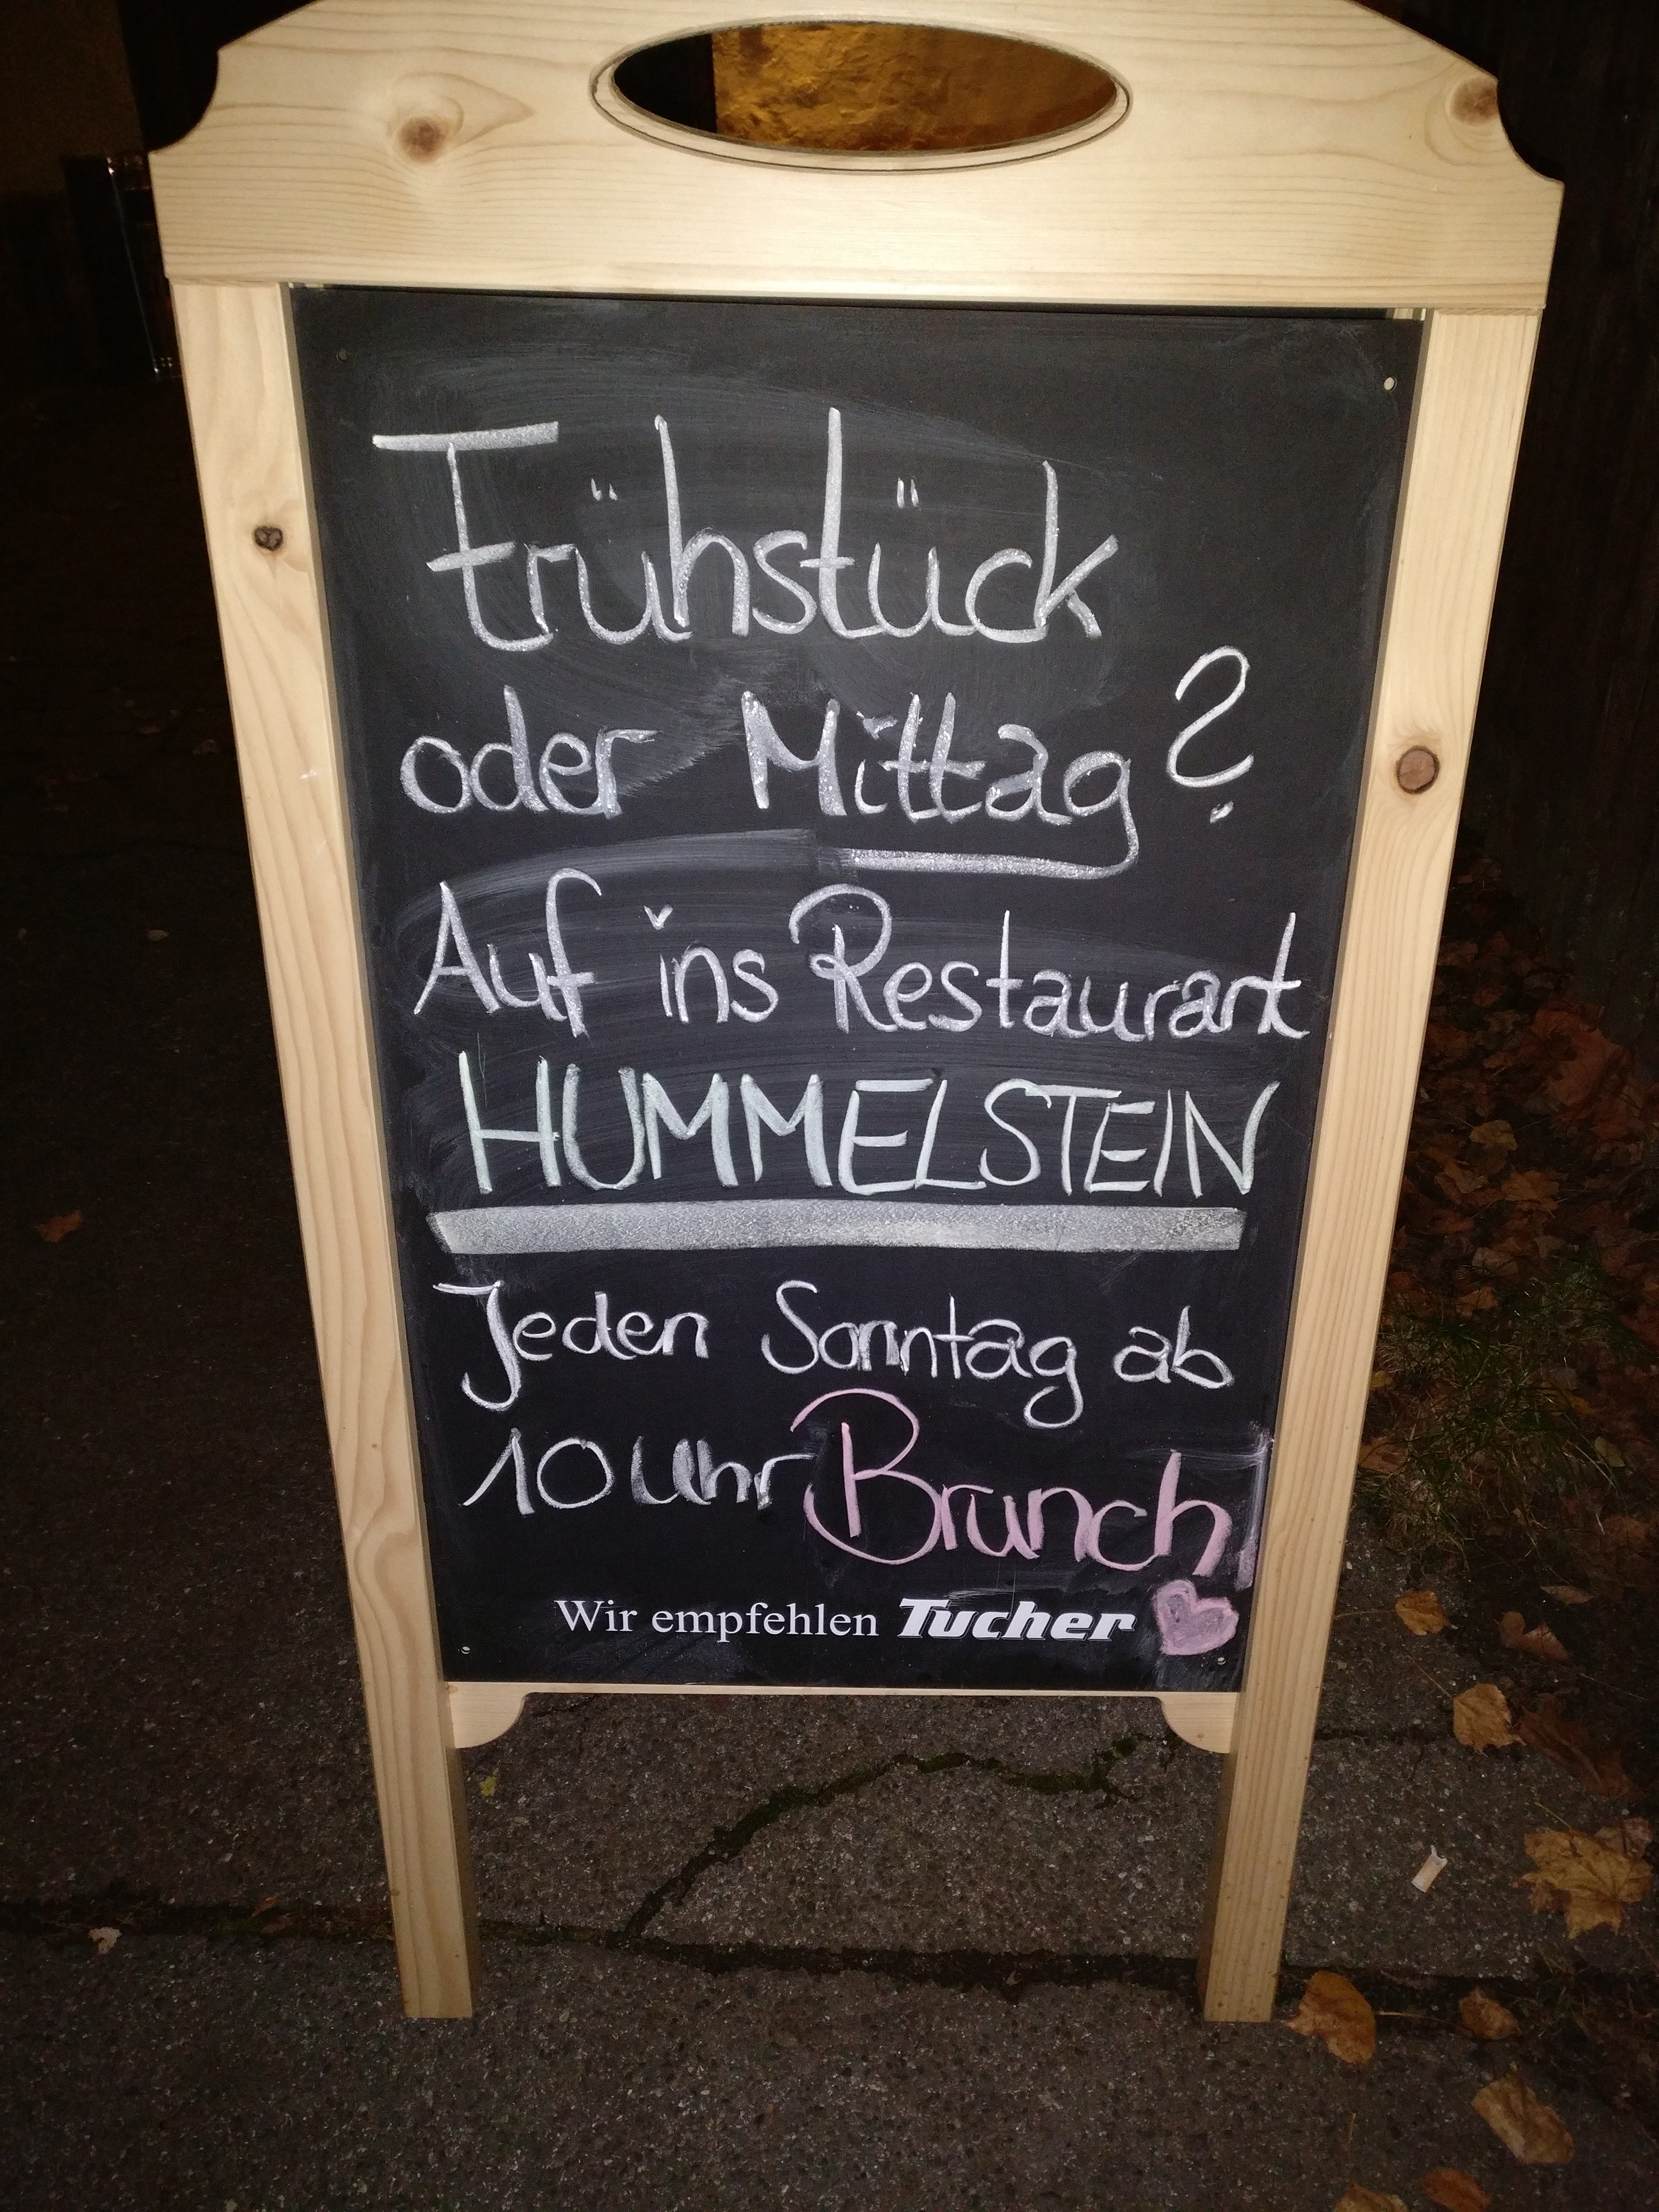 Frühstück
oder Mittag?
Auf ins Restaurant
HUMMELSTEIN
Jeden Sonntag ab
10 Uhr Brunch
Wir empfehlen Tucher